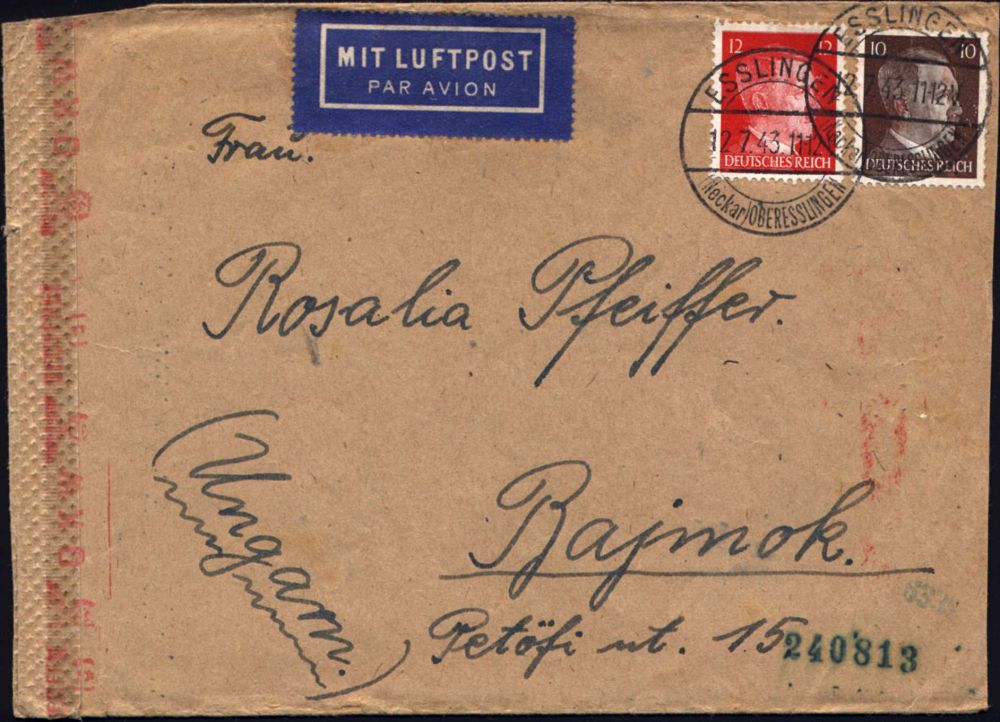 MIT LUFTPOST
PAR AVION
12 12
DEUTSCHES REICH
10 10
DEUTSCHES REICH
ESSLINGEN
12.7.43.11-12
(Neckar)OBERESSLINGEN
ESSLINGEN
43.11-12
Frau.
Rosalia Pfeiffer.
(Ungarn.)
Bajmok.
Petöfi ut. 15
240813